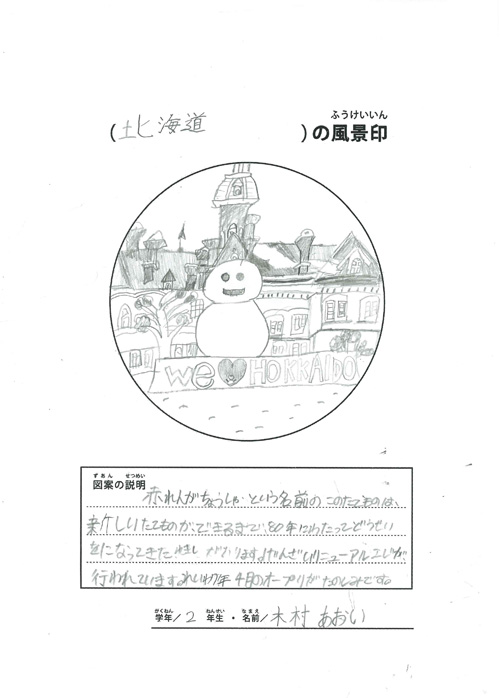 ふうけいいん
(北海道)の風景印
We ♥ HOKKAIDO
ずあん せつめい
図案の説明
赤れんがちょうしゃという名前のこのたてものは、
新しいたてものができるまで、80年にわたってどうせい
をになってきたれきしがあります。げんざいリニューアル工じが
行われています。れいわ7年4月のオープンがたのしみです。
がくねん ねんせい なまえ
学年/2 年生・名前/木村 あおい